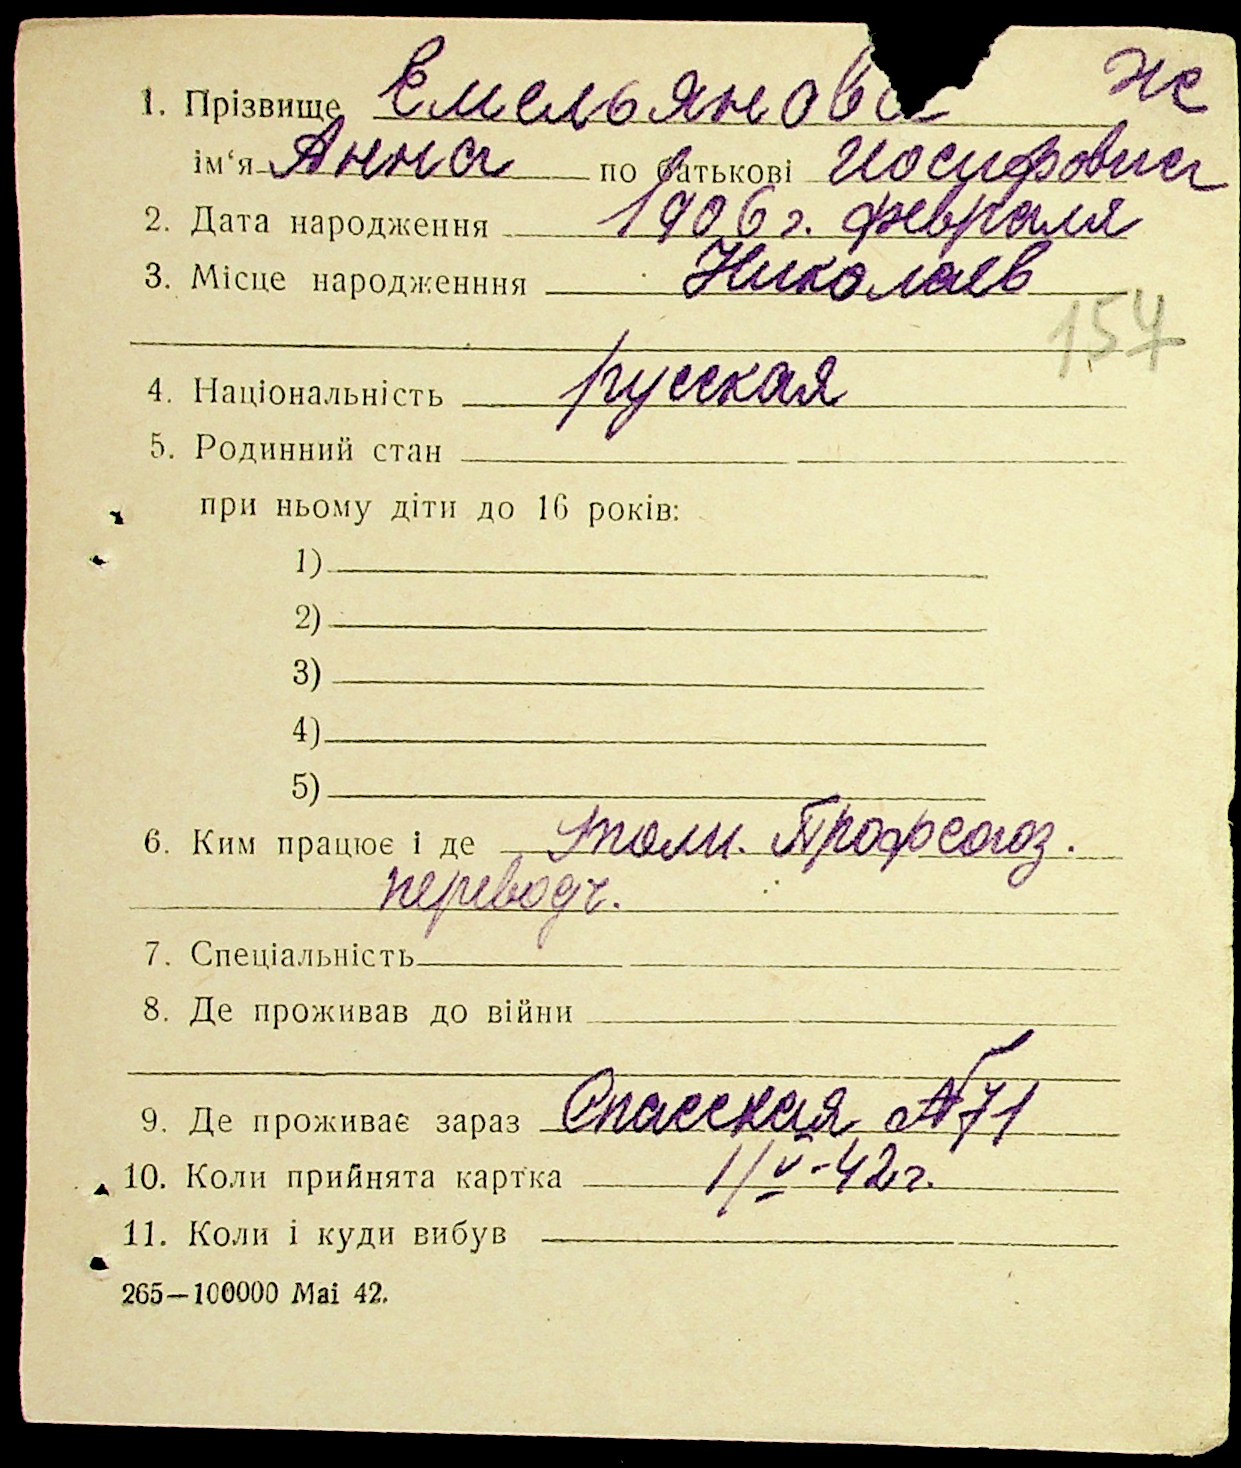 1. Прізвище Емельянова Же
ім‘я Анна по батькові Иосифовна
2. Дата народження 1906 г. февраля
3. Місце народженння Николаев
157
4. Національність русская
5. Родинний стан
при ньому діти до 16 років:
1)
2)
3)
4)
5)
6. Ким працює і де Профсоюз.
переводч.
7. Спеціальність
8. Де проживав до війни
9. Де проживає зараз Спасская №71
10. Коли прийнята картка 1/V-42 г.
11. Коли і куди вибув
265—100000 Mai 42.